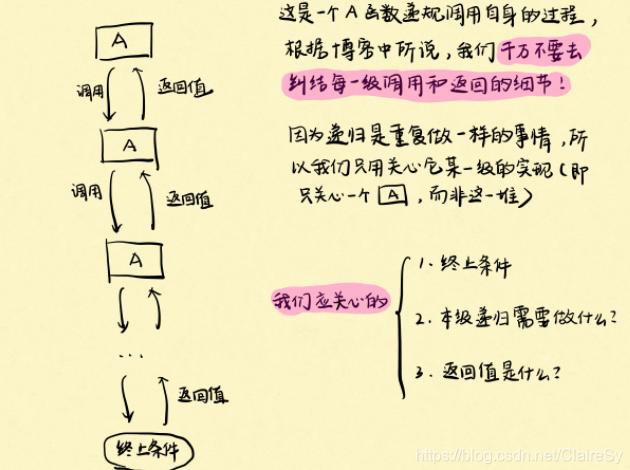 A
调用
返回值
A
调用
返回值
A
...
返回值
终止条件
这是一个A函数递规调用自身的过程,
根据博客中所说,我们千万不要去
纠结每一级调用和返回的细节!
因为递归是重复做一样的事情,所
以我们只用关心它某一级的实现(即
只关心一个 A ,而非这一堆)
我们应关心的
1. 终止条件
2. 本级递归需要做什么?
3. 返回值是什么?
https://blog.csdn.net/ClaireSy